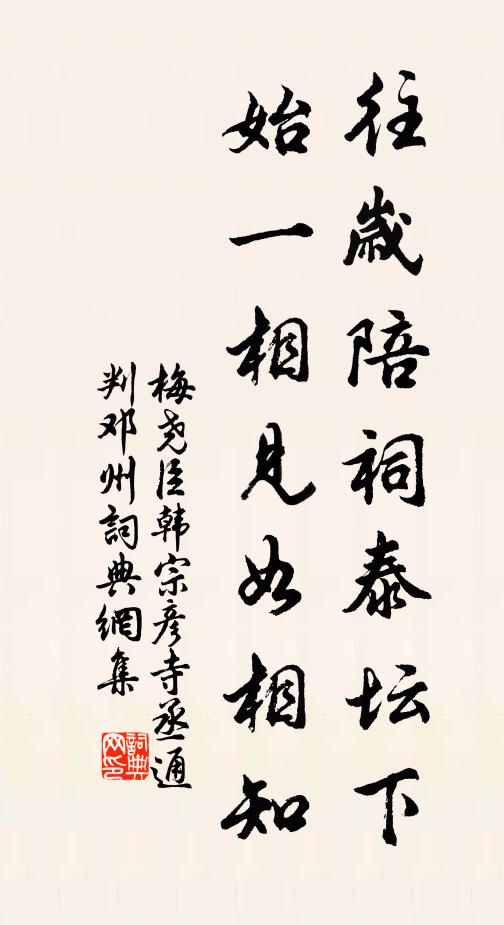 往岁陪祠泰坛下
始一相见如相知
梅尧臣韩宗彦寺丞通
判邓州词典網集
詞典网印